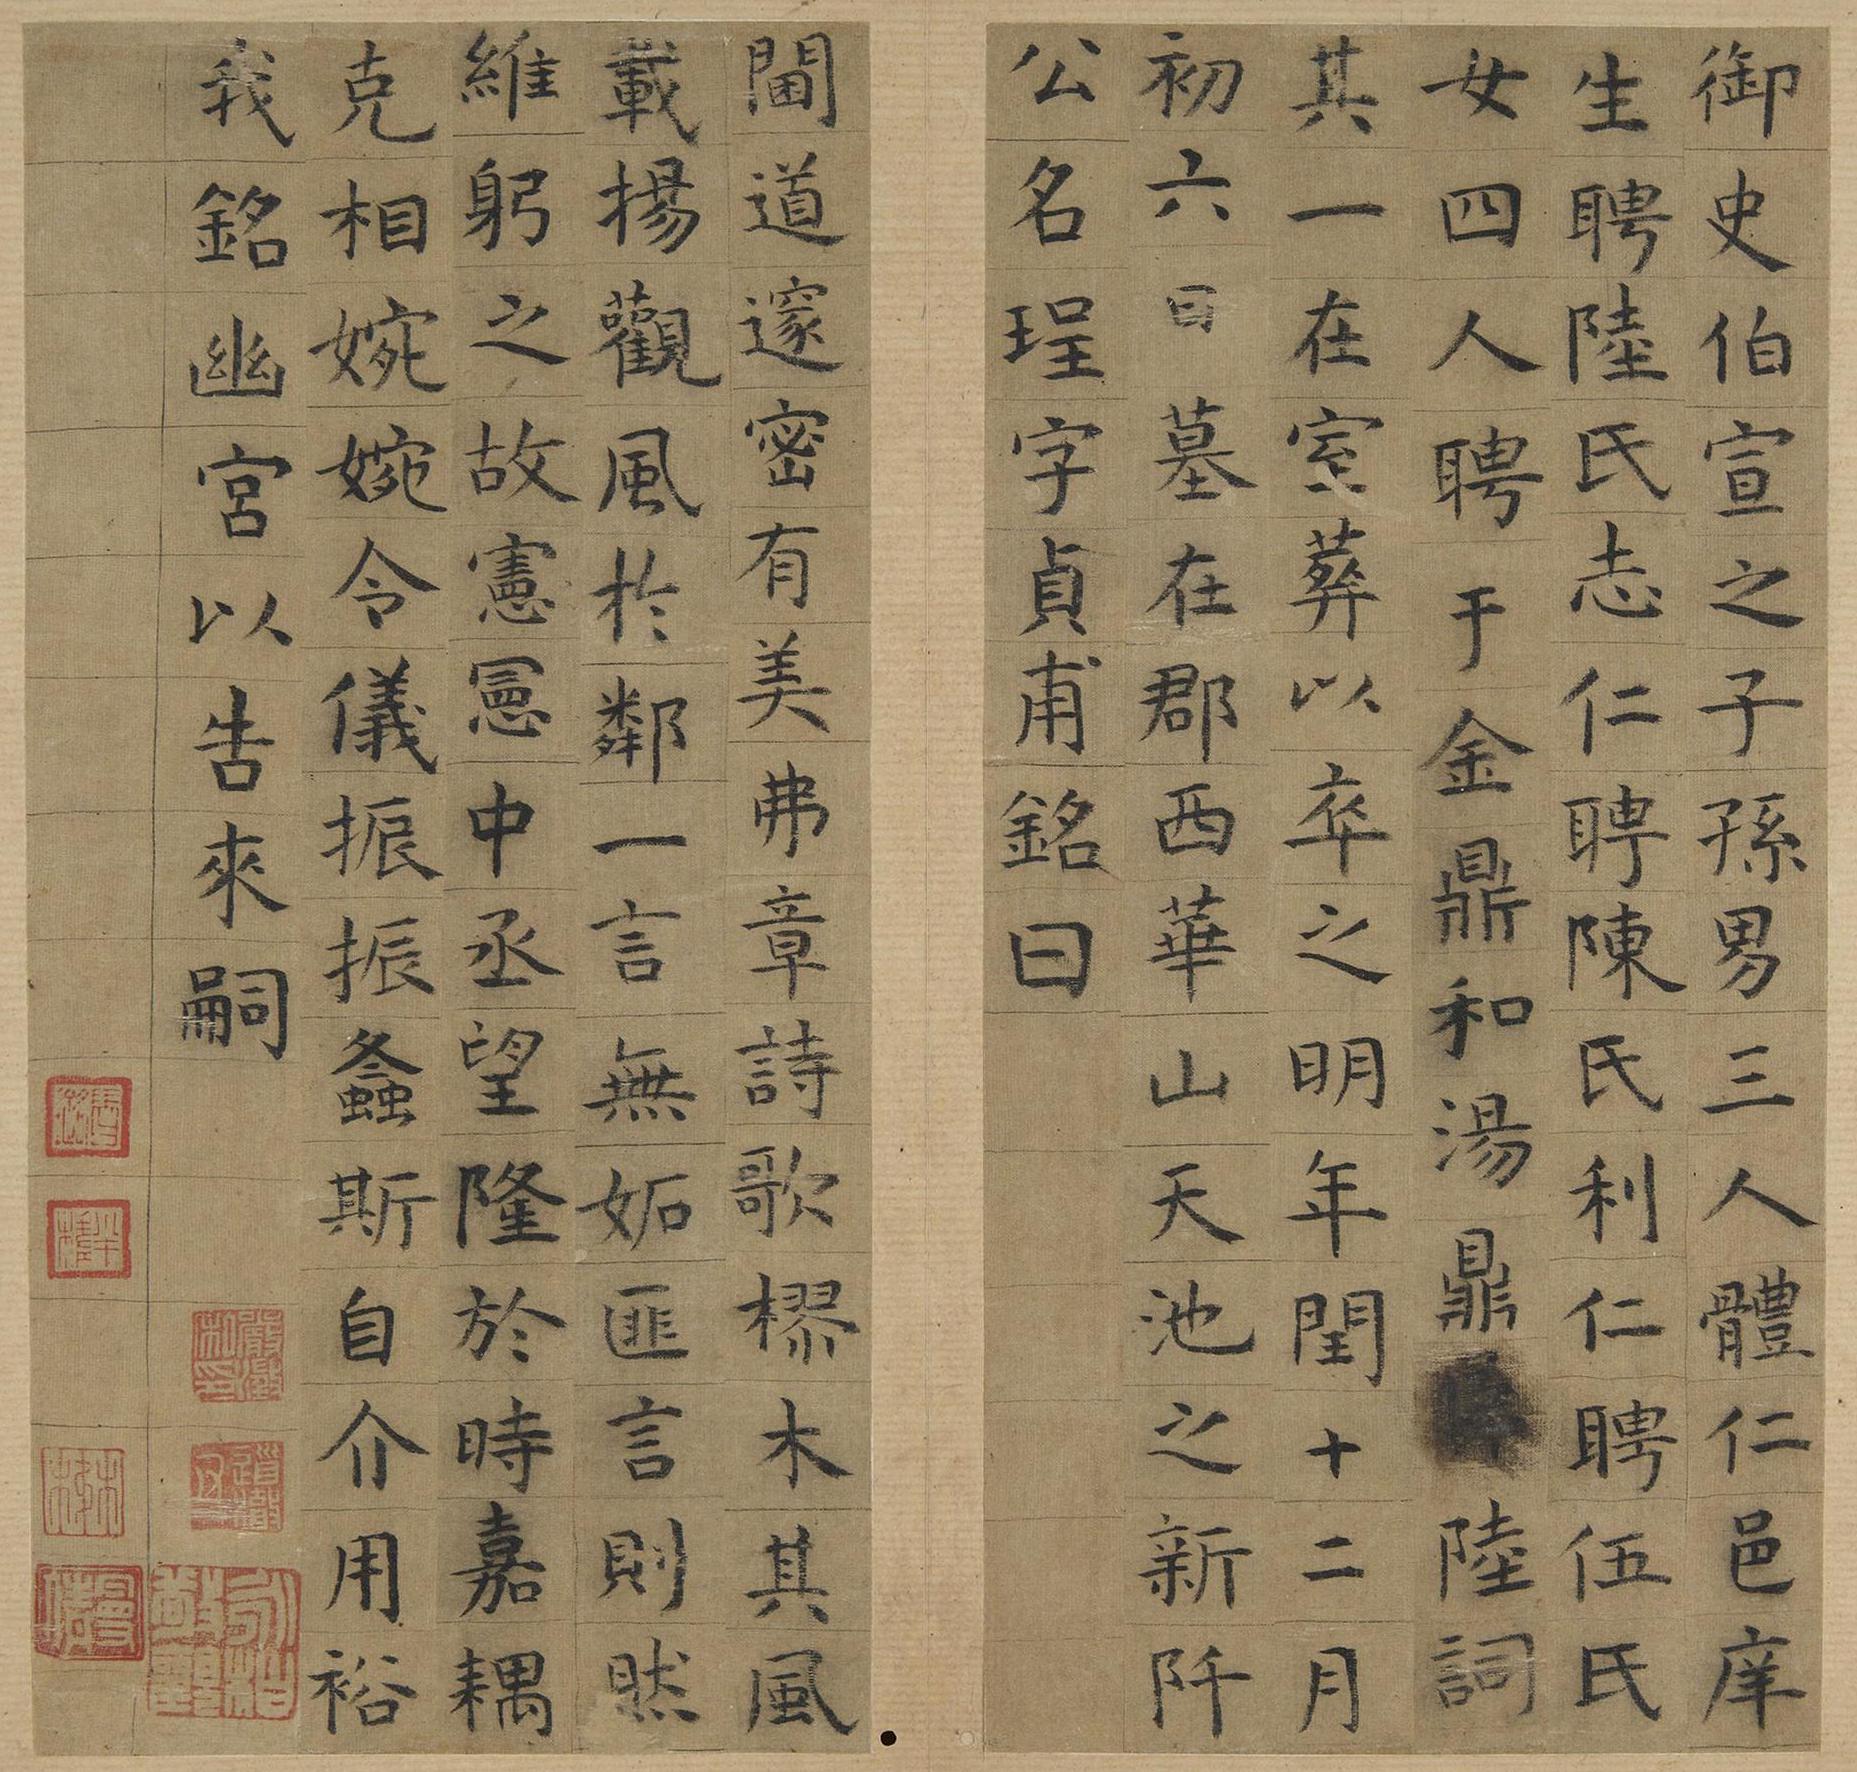 御史伯宣之子孫男三人體仁邑庠
生聘陸氏志仁聘陳氏利仁聘伍氏
女四人聘于金鼎和湯鼎陸詞
其一在室葬以卒之明年閏十二月
初六日墓在郡西華山天池之新阡
公名珵字貞甫銘曰
閫道邃密有美弗章詩歌樛木其風
載揚觀風於鄰一言無妬匪言則然
維躬之故憲憲中丞望隆於時嘉耦
克相婉婉令儀振振螽斯自介用裕
我銘幽宮以告來嗣